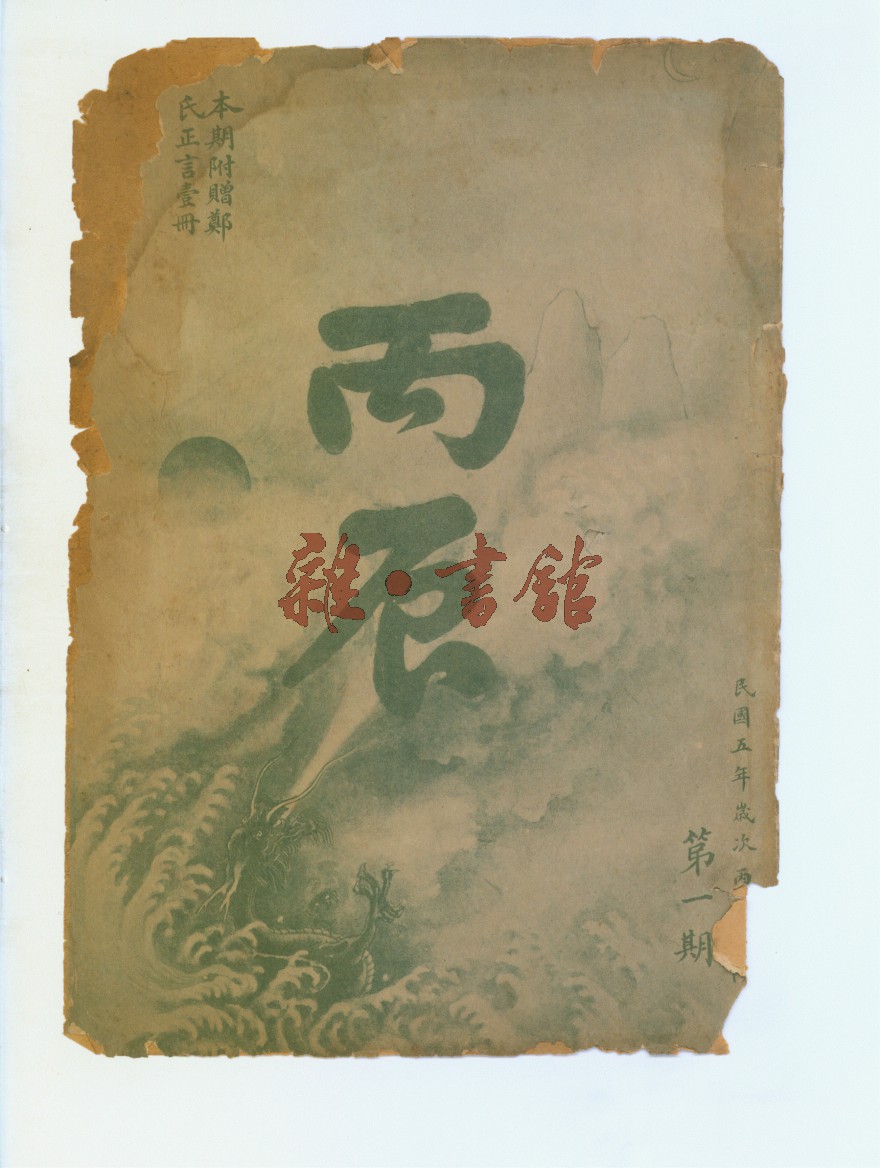 本期附贈鄭
氏正言壹冊
丙辰
雜·書館
民國五年歲次丙
第一期